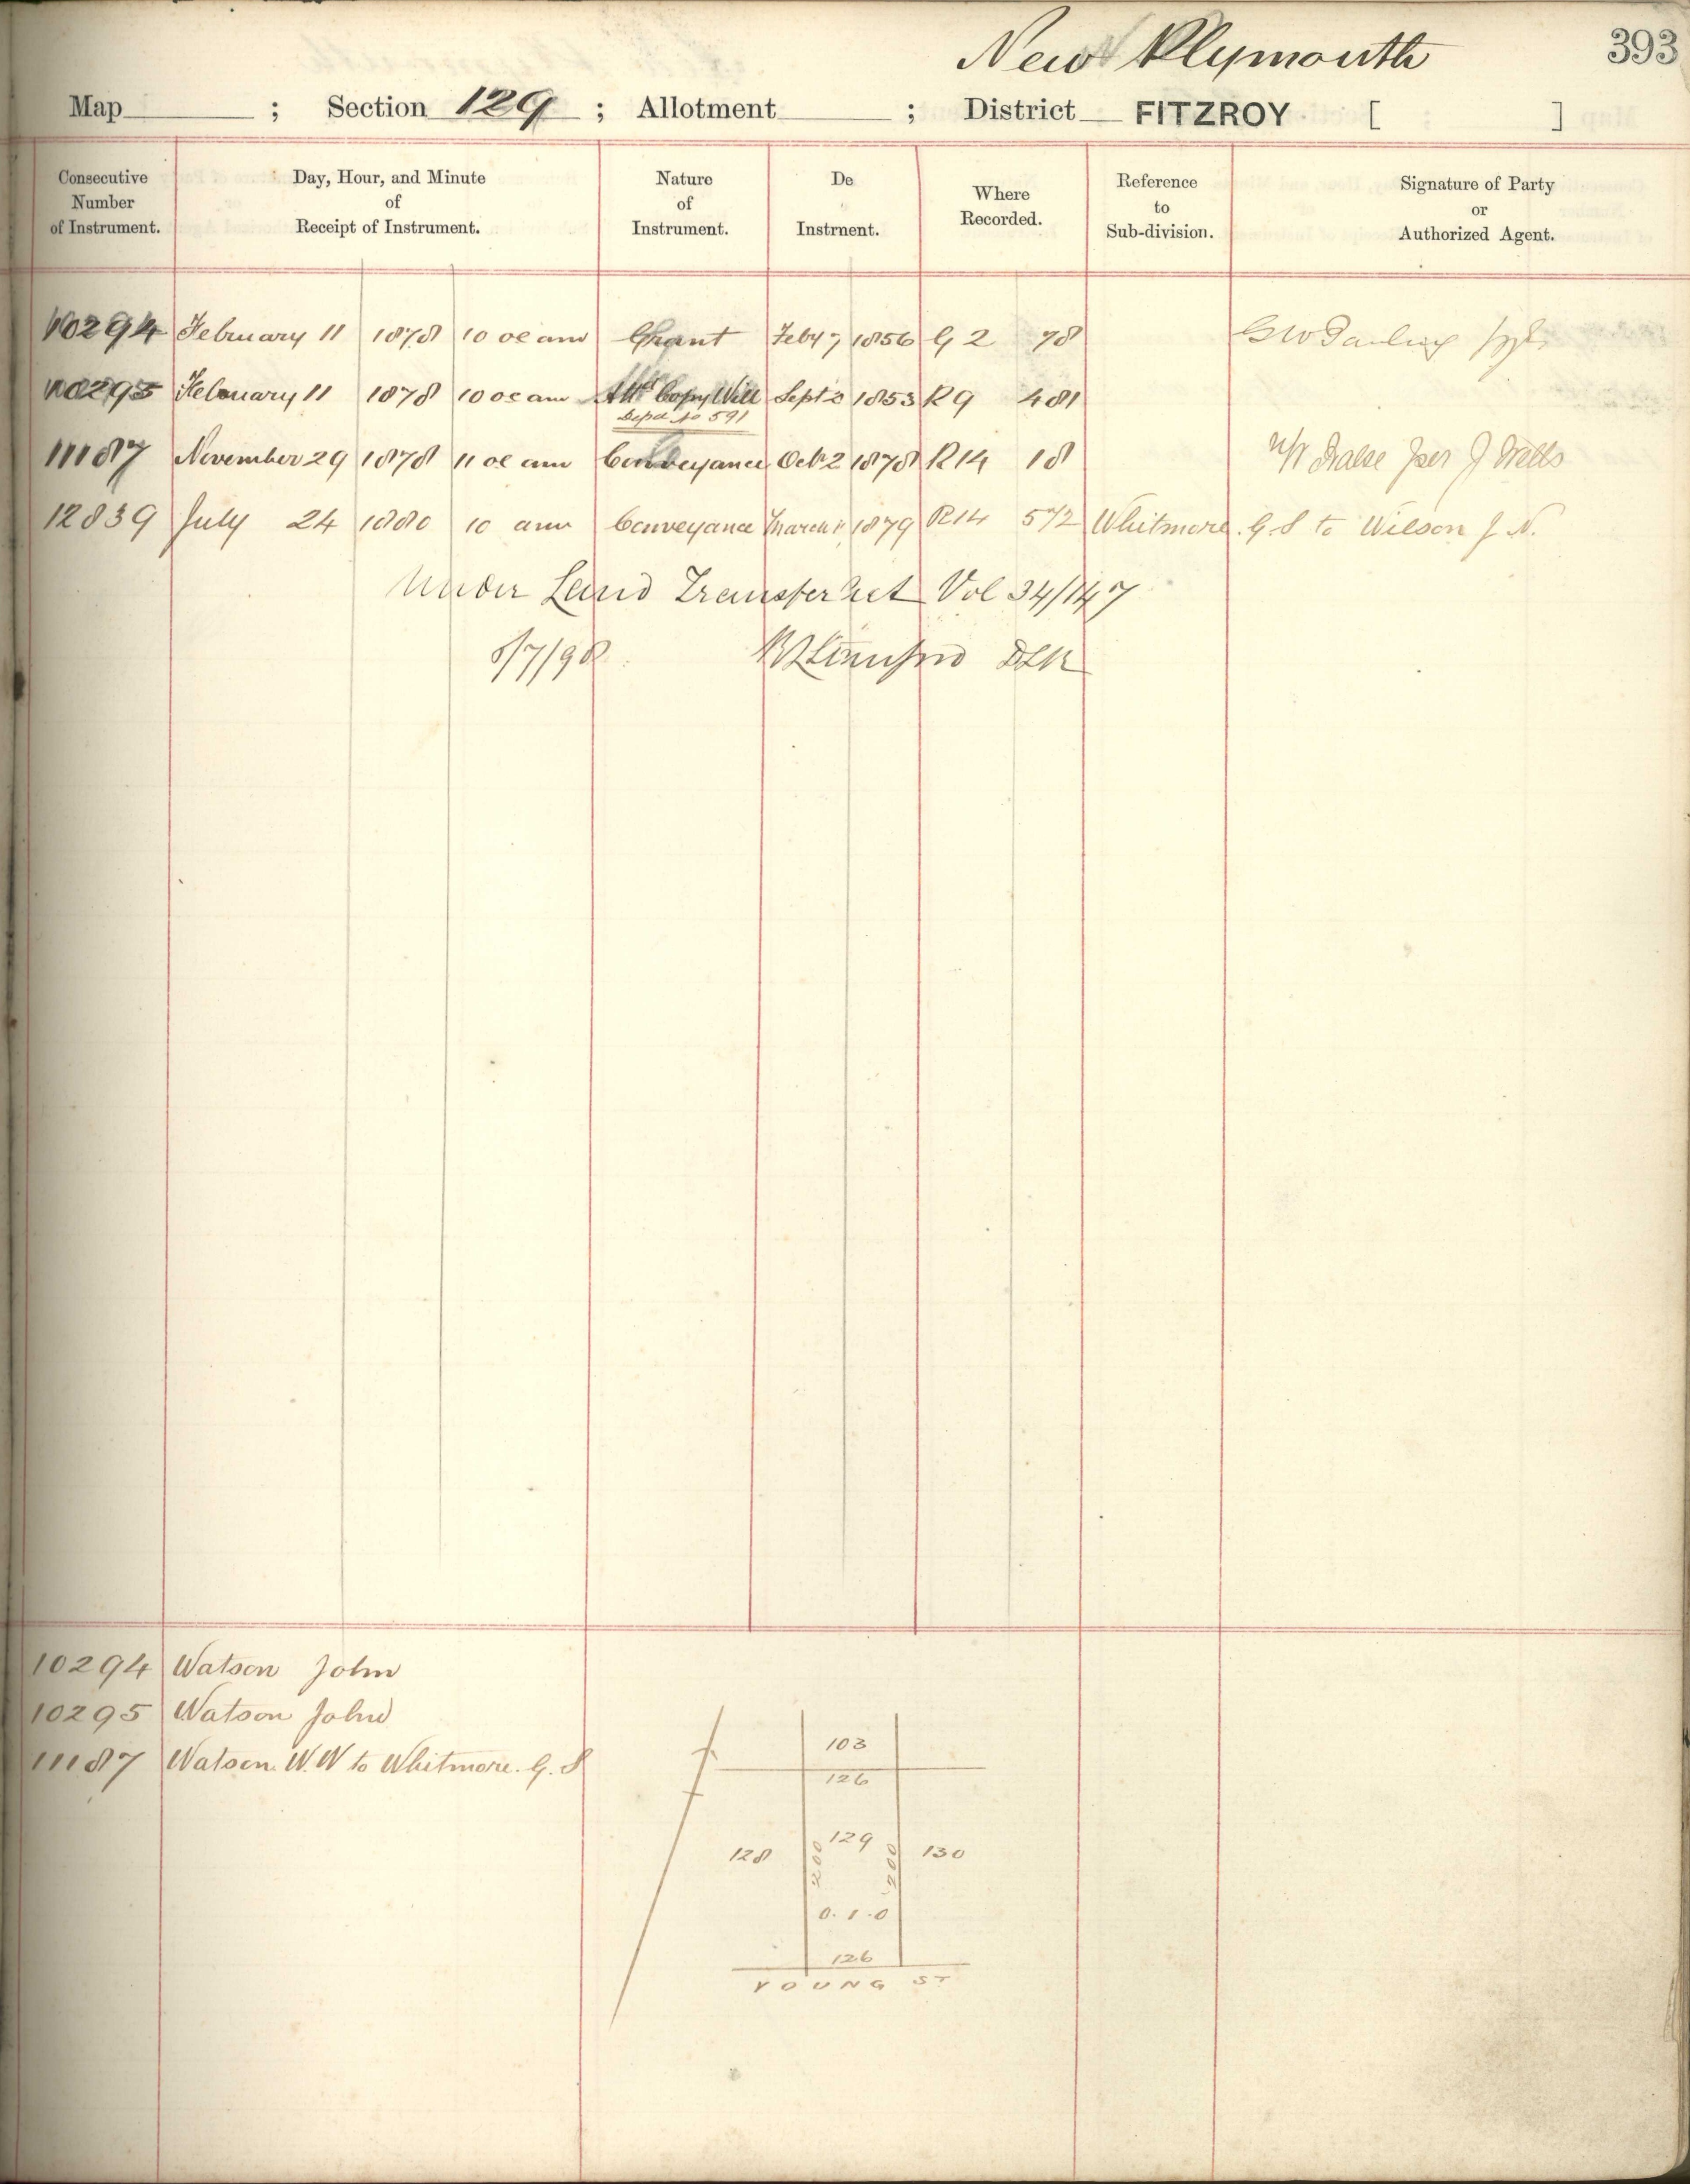 New Plymouth 393
Map ; Section 129 ; Allotment ; District FITZROY [ ]
Consecutive Number of Instrument.
Day, Hour, and Minute of Receipt of Instrument.
Nature of Instrument.
De Instrnent.
Where Recorded.
Reference to Sub-division.
Signature of Party or Authorized Agent.
10294 February 11 1878 10 oc am Grant Feby 7 1856 G 2 78
10295 February 11 1878 10 oc am Copy Will Sept 2 1853 R 9 481
Depd No 591
11187 November 29 1878 11 oc am Conveyance Oct 2 1878 R 14 18 per J Wells
12839 July 24 1880 10 am Conveyance March 1879 R14 572 Whitmore. G. S to Wilson J. N.
Under Land Transfer Act Vol 34/147
8/7/98 DLR
10294 Watson John
10295 Watson John
11187 Watson. W. W to Whitmore. G. S
103
126
128 200 129 200 130
0. 1. 0
126
YOUNG ST